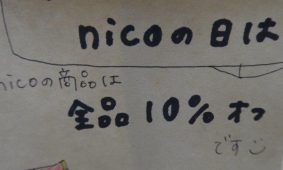 nicoの日は
nicoの商品は
全品10%オフ
です